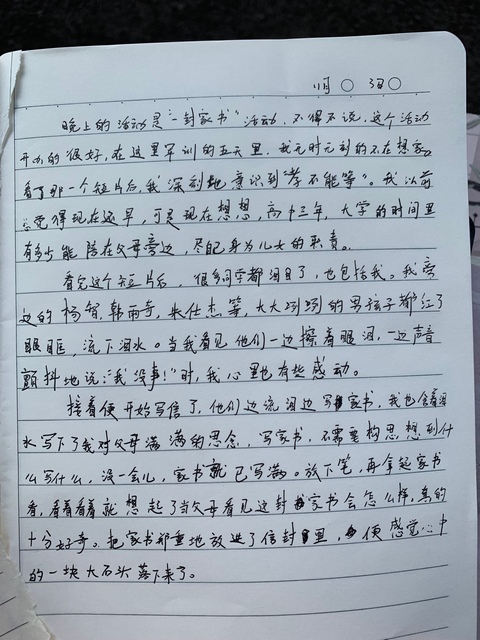 明 ○ 阴○
晚上的活动是“一封家书”活动，不得不说，这个活动
开办的很好，在这里军训的五天里，我无时无刻的不在想家，
看了那一个短片后，我深刻地意识到“孝不能等”。我以前
总觉得现在还早，可是现在想想，高中三年，大学的时间里
有多少能陪在父母旁边，尽配身为儿女的职责。
看完这个短片后，很多同学都泪目了，也包括我。我旁
边的杨智，韩雨奇，朱仕杰等，大大咧咧的男孩子都红了
眼眶，流下泪水。当我看见他们一边擦着眼泪，一边声音
颤抖地说：“我没事！”时，我心里也有些感动。
接着便开始写信了，他们边流泪边写家书，我也含着泪
水写下了我对父母满满的思念，写家书，不需要构思想到什
么写什么，没一会儿，家书就已写满。放下笔，再拿起家书
看，看着看着就想起了当父母看见这封家书会怎么样，真的
十分好奇。把家书郑重地放进了信封里，便感觉心中
的一块大石头落下来了。